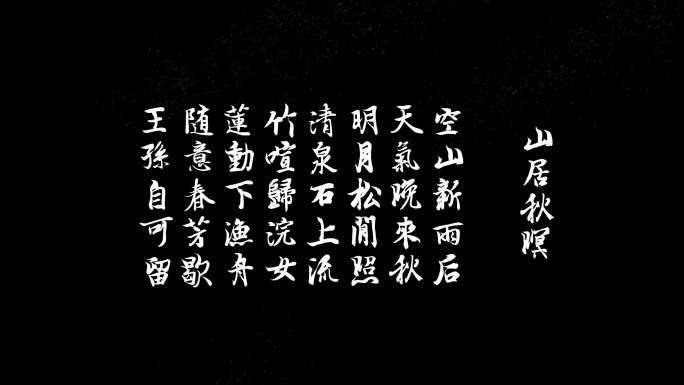 山居秋暝
空山新雨后
天氣晚來秋
明月松間照
清泉石上流
竹喧歸浣女
蓮動下漁舟
随意春芳歇
王孫自可留